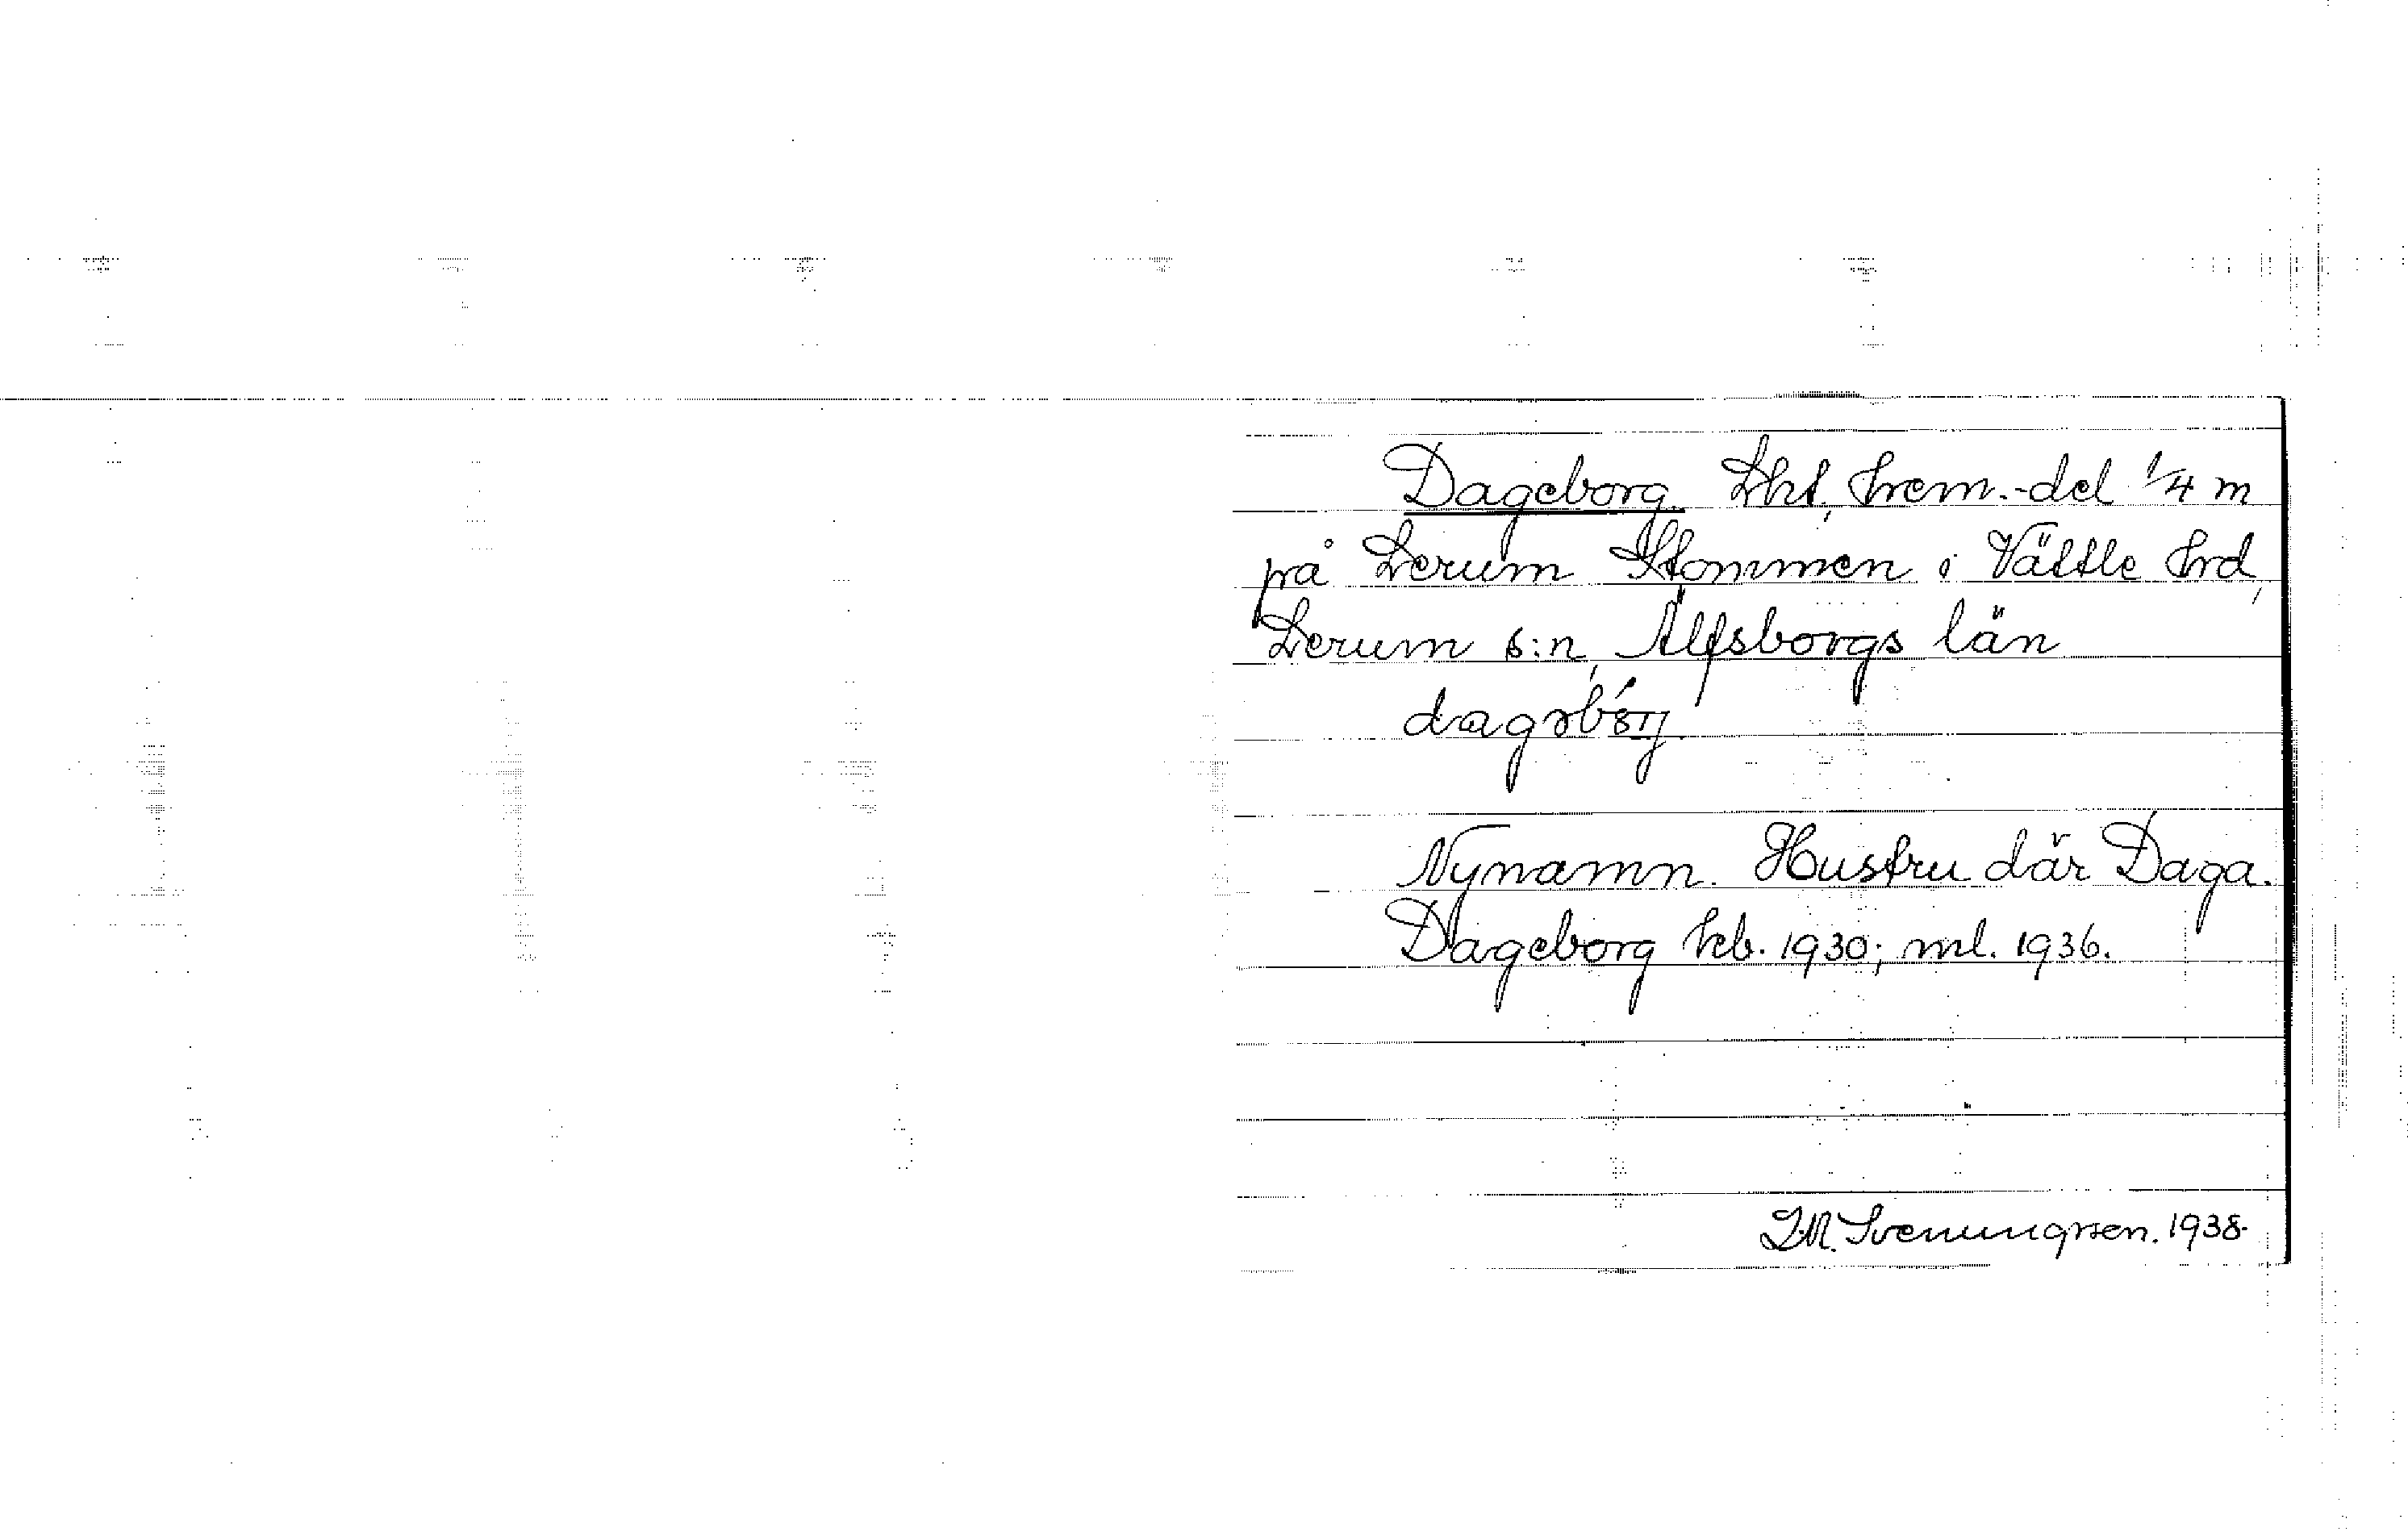 Dageborg. Lht, hem.-del 1/4 m
på Lerum Stommen i Vättle hrd,
Lerum s:n, Älfsborgs län
Nynamn. Hustru där Daga.
Dageborg kb. 1930; ml. 1936.
I.M. Svenungsson. 1938.